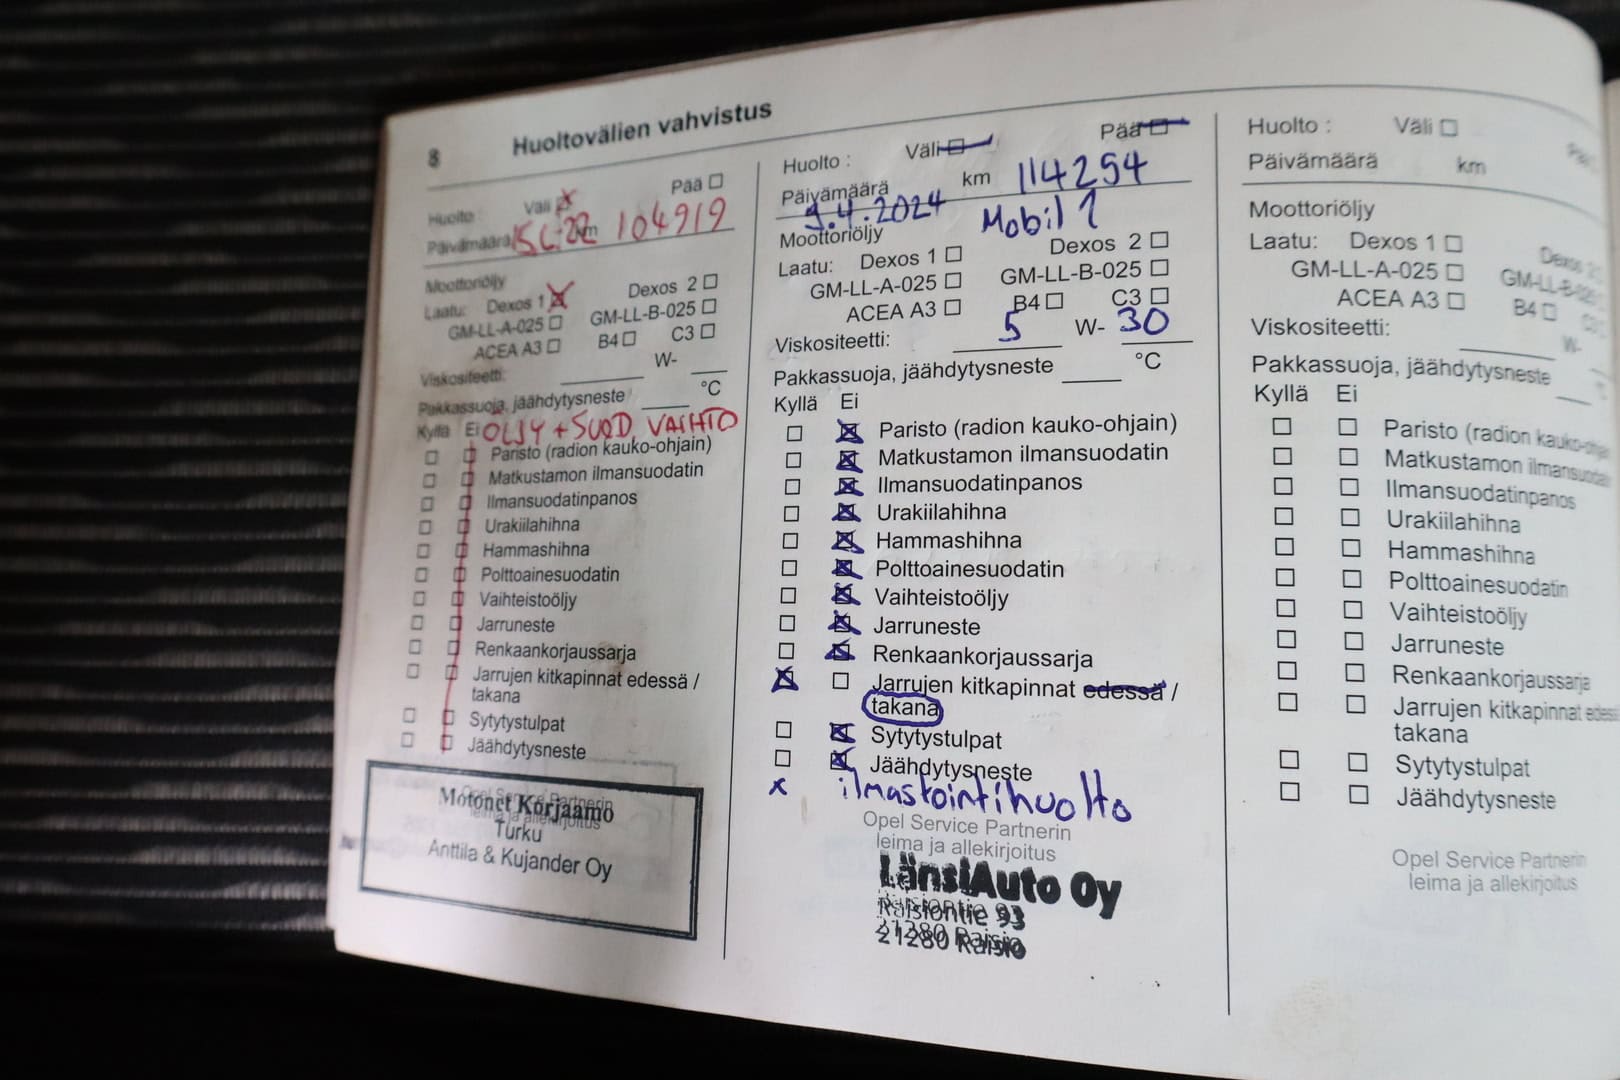 8 Huoltovälien vahvistus
Huolto : Väli Pää
Päivämäärä km 104919
Moottoriöljy
Laatu: Dexos 1 Dexos 2
GM-LL-A-025 GM-LL-B-025
ACEA A3 B4 C3
Viskositeetti: W-
Pakkassuoja, jäähdytysneste °C
Kyllä Ei ÖLJY + SUOD VAIHTO
Paristo (radion kauko-ohjain)
Matkustamon ilmansuodatin
Ilmansuodatinpanos
Urakiilahihna
Hammashihna
Polttoainesuodatin
Vaihteistoöljy
Jarruneste
Renkaankorjaussarja
Jarrujen kitkapinnat edessä /
takana
Sytytystulpat
Jäähdytysneste
Opel Service Partnerin
leima ja allekirjoitus
Motonet Korjaamo
Turku
Anttila & Kujander Oy
Huolto : Väli Pää
Päivämäärä km 114254
9.4.2024 Mobil 1
Moottoriöljy
Laatu: Dexos 1 Dexos 2
GM-LL-A-025 GM-LL-B-025
ACEA A3 B4 C3
Viskositeetti: 5 W- 30
Pakkassuoja, jäähdytysneste °C
Kyllä Ei
Paristo (radion kauko-ohjain)
Matkustamon ilmansuodatin
Ilmansuodatinpanos
Urakiilahihna
Hammashihna
Polttoainesuodatin
Vaihteistoöljy
Jarruneste
Renkaankorjaussarja
Jarrujen kitkapinnat edessä /
takana
Sytytystulpat
Jäähdytysneste
x ilmastointihuolto
Opel Service Partnerin
leima ja allekirjoitus
LänsiAuto Oy
Raisiontie 93
21280 Raisio
Huolto : Väli
Päivämäärä km
Moottoriöljy
Laatu: Dexos 1 Dexos
GM-LL-A-025 GM-LL-B-025
ACEA A3 B4
Viskositeetti: W-
Pakkassuoja, jäähdytysneste
Kyllä Ei
Paristo (radion kauko-ohjain)
Matkustamon ilmansuodatin
Ilmansuodatinpanos
Urakiilahihna
Hammashihna
Polttoainesuodatin
Vaihteistoöljy
Jarruneste
Renkaankorjaussarja
Jarrujen kitkapinnat
takana
Sytytystulpat
Jäähdytysneste
Opel Service Partnerin
leima ja allekirjoitus